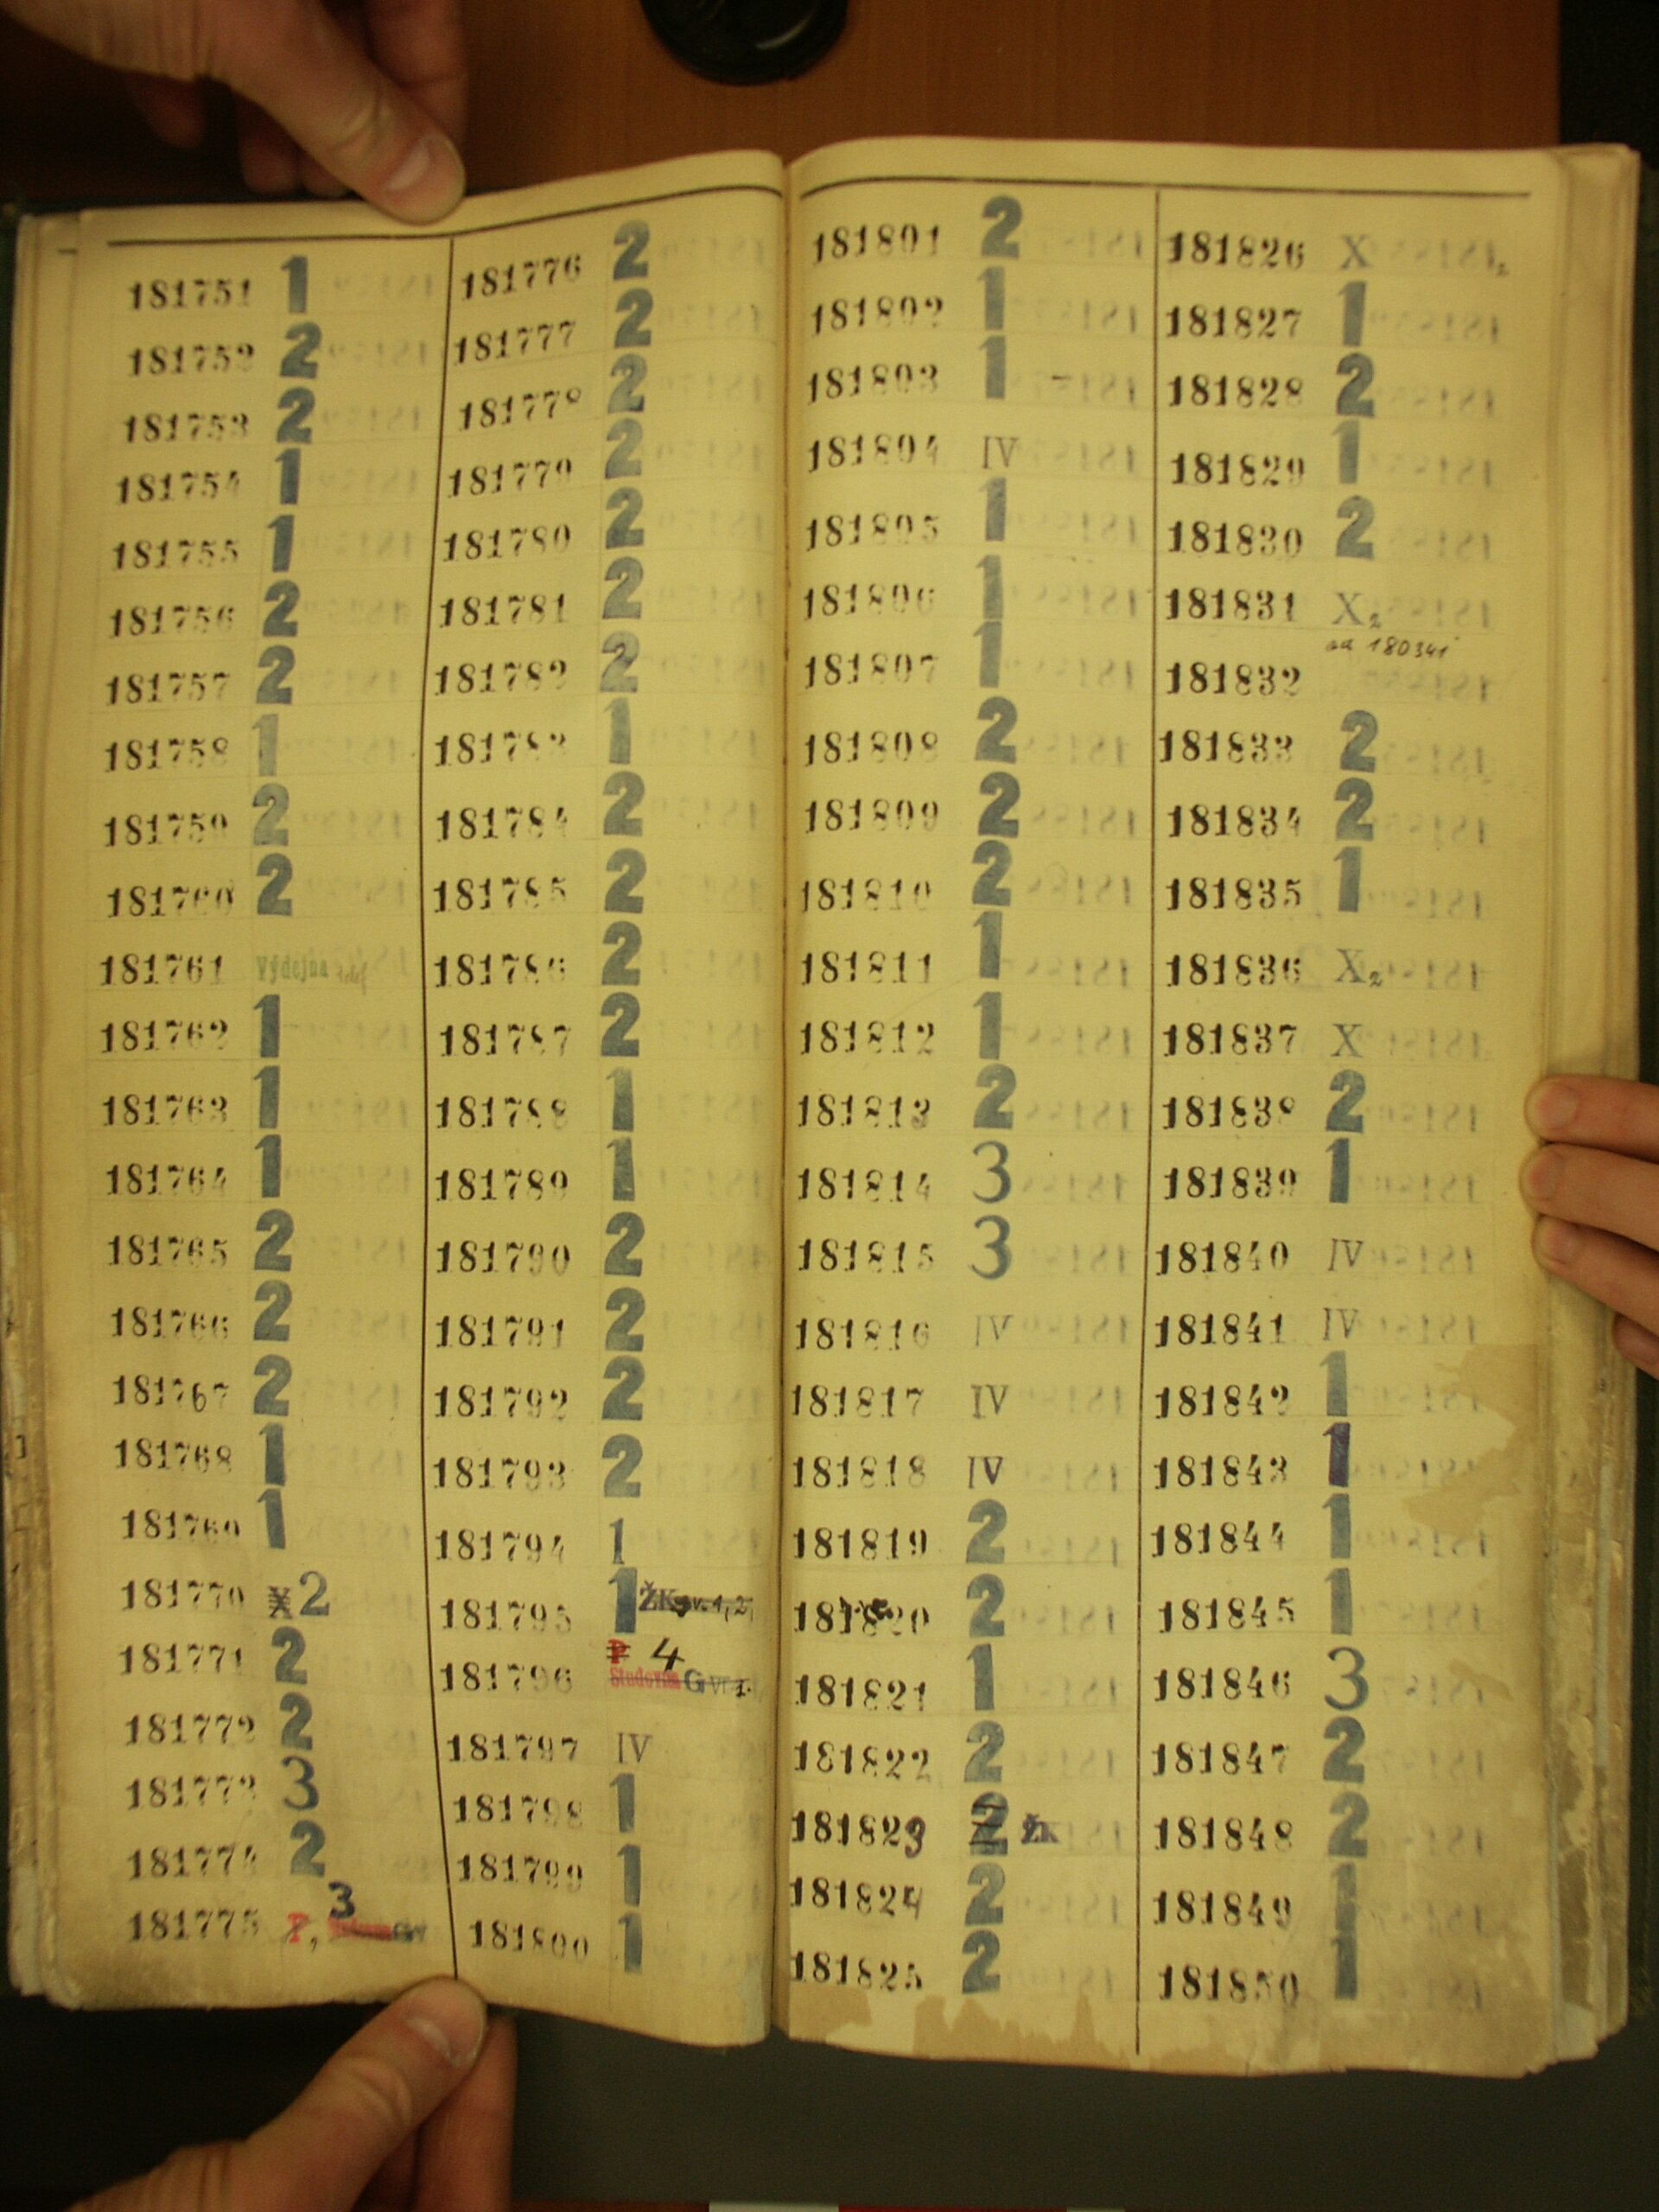 181751 1
181752 2
181753 2
181754 1
181755 1
181756 2
181757 2
181758 1
181759 2
181760 2
181761 Výdejna
181762 1
181763 1
181764 1
181765 2
181766 2
181767 2
181768 1
181769 1
181770 X 2
181771 2
181772 2
181773 3
181774 2
181775 P, 3
181776 2
181777 2
181778 2
181779 2
181780 2
181781 2
181782 2
181783 1
181784 2
181785 2
181786 2
181787 2
181788 1
181789 1
181790 2
181791 2
181792 2
181793 2
181794 1
181795 1 ŽK sv. 1, 2,
P 4
181796 Studovna
181797 IV
181798 1
181799 1
181800 1
181801 2
181802 1
181803 1
181804 IV
181805 1
181806 1
181807 1
181808 2
181809 2
181810 2
181811 1
181812 1
181813 2
181814 3
181815 3
181816 IV
181817 IV
181818 IV
181819 2
181820 2
181821 1
181822 2
181823 2 ŽK
181824 2
181825 2
181826 X
181827 1
181828 2
181829 1
181830 2
181831 X2
na 180341
181832
181833 2
181834 2
181835 1
181836 X2
181837 X
181838 2
181839 1
181840 IV
181841 IV
181842 1
181843 1
181844 1
181845 1
181846 3
181847 2
181848 2
181849 1
181850 1